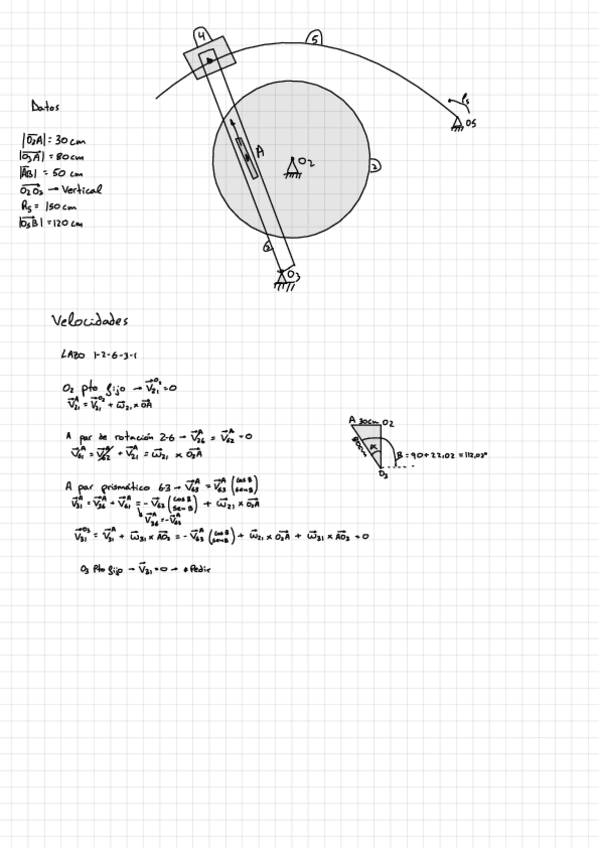 4
5
Datos
|O₂A| = 30 cm
|O₃A| = 80 cm
|AB| = 50 cm
O₂O₃ → Vertical
R₅ = 150 cm
|O₃B| = 120 cm
A
O₂
2
O₅
6
O₃
Velocidades
LAZO 1-2-6-3-1
O₂ pto fijo → V₂₁^O₂ = 0
V₂₁^A = V₂₁^O₂ + ω₂₁ × OA
A par de rotación 2-6 → V₂₆^A = V₆₂^A = 0
V₆₁^A = V₆₂^A + V₂₁^A = ω₂₁ × O₂A
A par prismático 6-3 → V₆₃^A = V₆₃^A (cos B sen B)
V₃₁^A = V₃₆^A + V₆₁^A = -V₆₃^A (cos B sen B) + ω₂₁ × O₂A
V₃₆^A = -V₆₃^A
V₃₁^O₃ = V₃₁^A + ω₃₁ × AO₃ = -V₆₃^A (cos B sen B) + ω₂₁ × O₂A + ω₃₁ × AO₃ = 0
O₃ Pto fijo → V₃₁ = 0 → * Pedir
A 30cm O₂
80cm
α
B = 90 + 22,02 = 112,02°
O₃